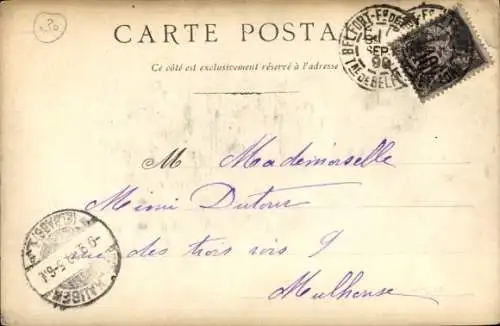 CARTE POSTA
Ce côté est exclusivement réservé à l'adresse
BELFORT
SEPT
99
M Mademoiselle
Mimi Dutour
rue des trois rois 9
Mulhouse